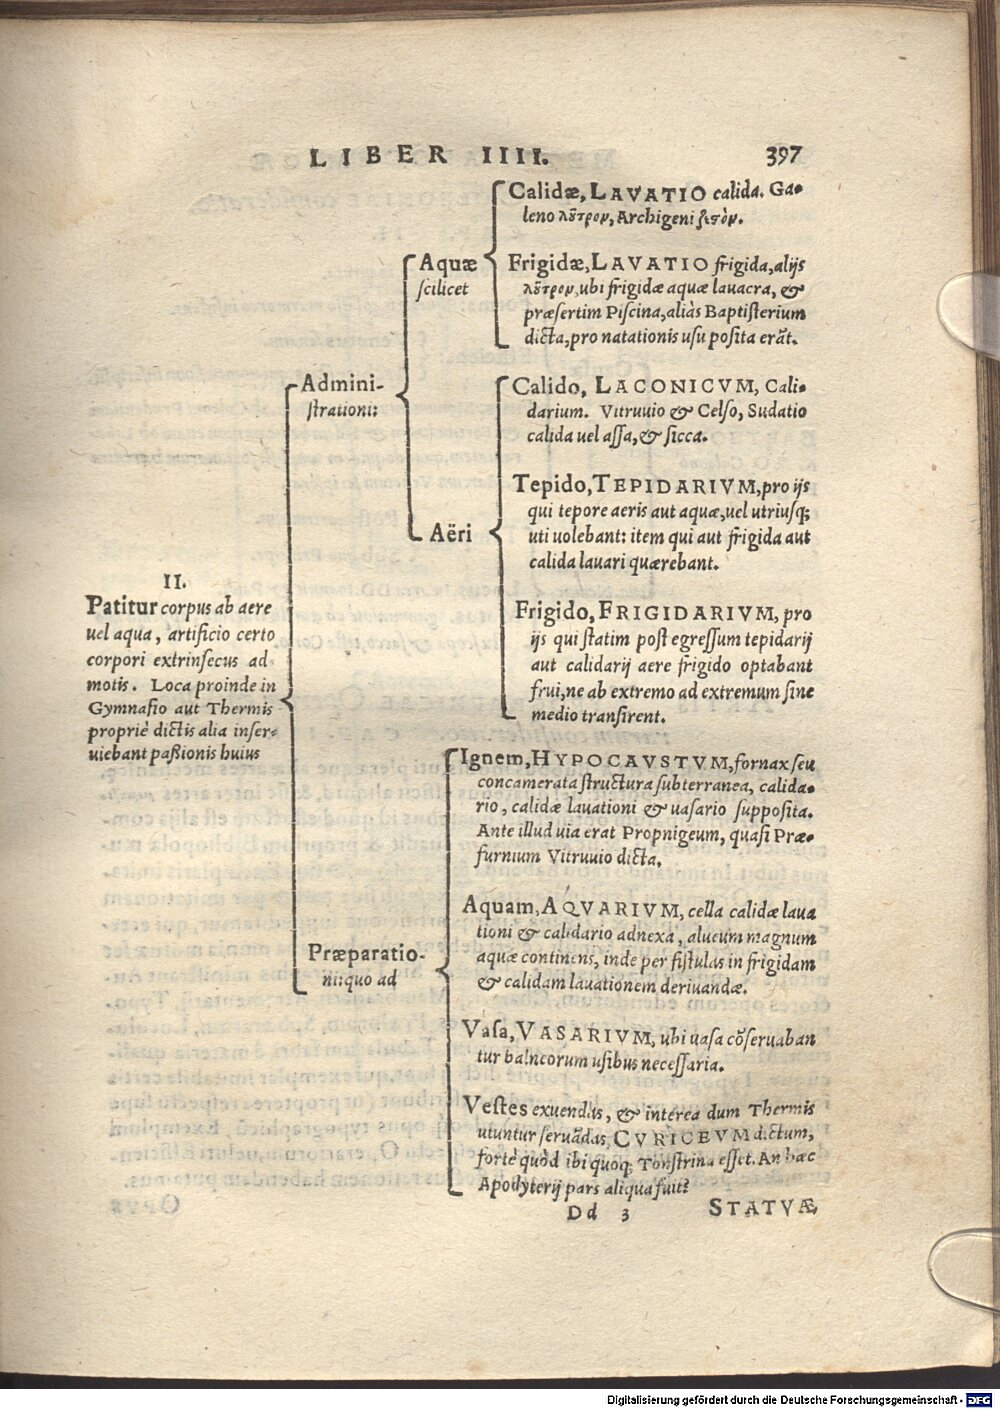 LIBER IIII. 397
Calidæ, LAVATIO calida. Ga-
leno λȣ̃τρον, Archigeni
Aquæ
scilicet
Frigidæ, LAVATIO frigida, alijs
λȣ̃τρον, ubi frigidæ aquæ lauacra, &
præsertim Piscina, aliàs Baptisterium
dicta, pro natationis usu posita erãt.
Admini-
strationi:
Calido, LACONICVM, Cali-
darium. Vitruuio & Celso, Sudatio
calida uel assa, & sicca.
Tepido, TEPIDARIVM, pro ijs
qui tepore aeris aut aquæ, uel utriusq;
uti uolebant: item qui aut frigida aut
calida lauari quærebant.
Aëri
Frigido, FRIGIDARIVM, pro
ijs qui statim post egressum tepidarij
aut calidarij aere frigido optabant
frui, ne ab extremo ad extremum sine
medio transirent.
II.
Patitur corpus ab aere
uel aqua, artificio certo
corpori extrinsecus ad
motis. Loca proinde in
Gymnasio aut Thermis
propriè dictis alia inser-
uiebant paßionis huius
Ignem, HYPOCAVSTVM, fornax seu
concamerata structura subterranea, calida-
rio, calidæ lauationi & uasario supposita.
Ante illud uia erat Propnigeum, quasi Præ-
furnium Vitruuio dicta.
Aquam, AQVARIVM, cella calidæ laua
tioni & calidario adnexa, alueum magnum
aquæ continens, inde per fistulas in frigidam
& calidam lauationem deriuandæ.
Præparatio-
ni: quo ad
Vasa, VASARIVM, ubi uasa cõseruaban
tur balneorum usibus necessaria.
Vestes exuendas, & interea dum Thermis
utuntur seruãdas, CVRICEVM dictum,
fortè quòd ibi quoq; Tonstrina esset. An hæc
Apodyterij pars aliqua fuit?
Dd 3 STATVÆ
Digitalisierung gefördert durch die Deutsche Forschungsgemeinschaft - DFG